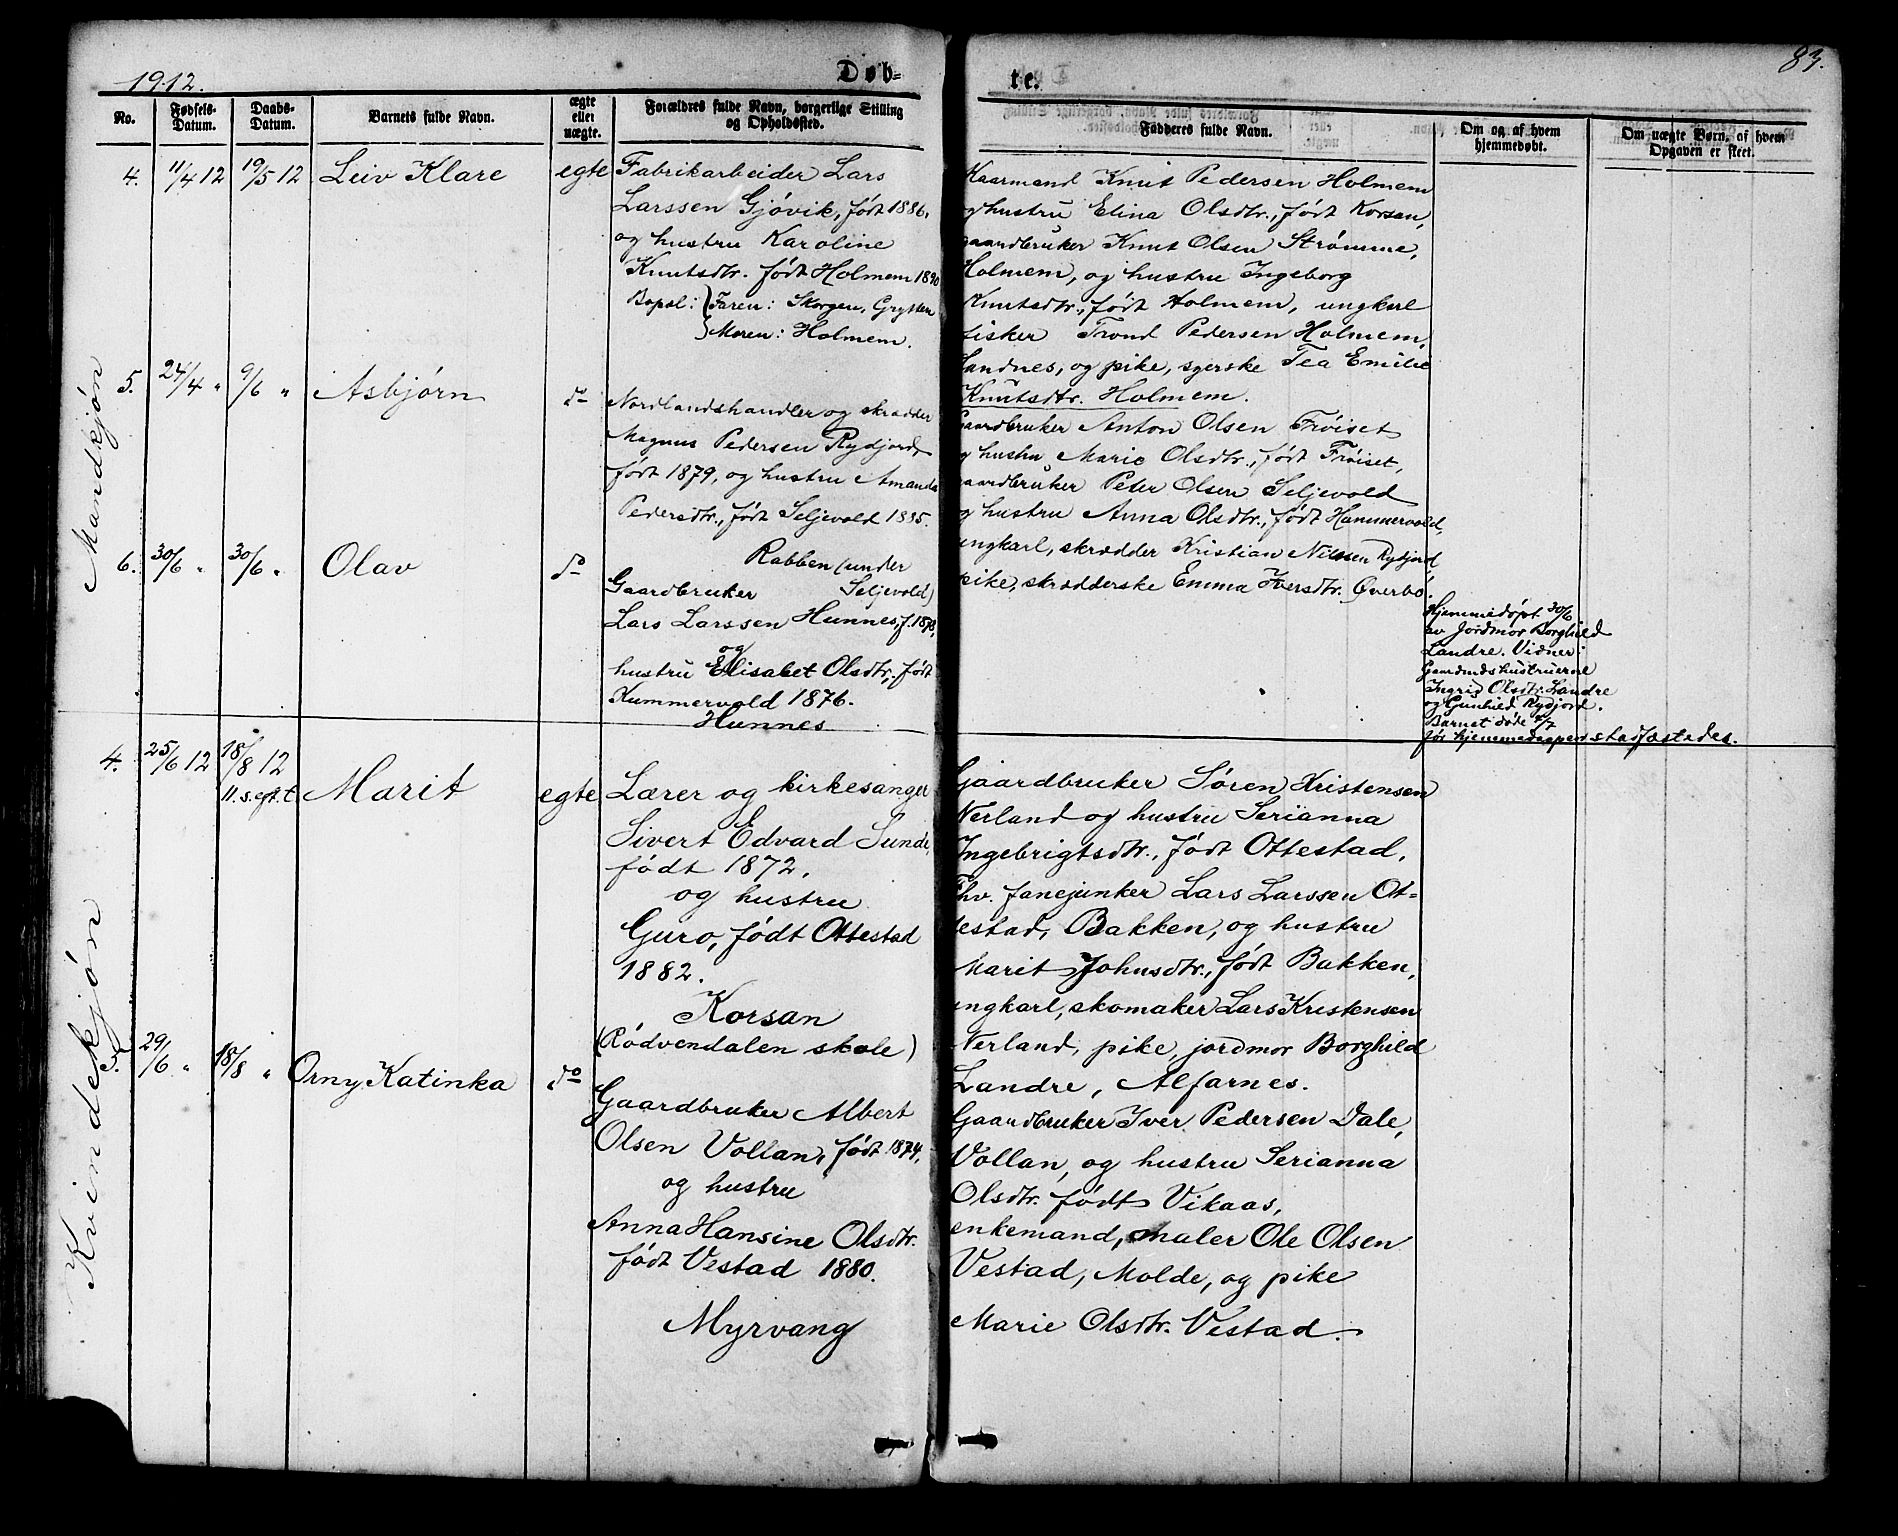 1912.
Døb=
te.
83.
No.
Fødsels-
Datum.
Daabs-
Datum.
Barnets fulde Navn.
ægte
eller
uægte.
Forældres fulde Navn, borgerlige Stilling
og Opholdssted.
Fadderes fulde Navn.
Om og af hvem
hjemmedøbt.
Om uægte Børn, af hvem
Opgaven er skeet.
Mandkjön
4. 11/4 12 19/5 12 Leiv Klare egte
Fabrikarbeider Lars
Larssen Gjövik, födt 1886,
og hustru Karoline
Knutsdtr. födt Holmem 1890
Bopæl: Faren: Skorgen, Grytten
Moren: Holmem.
Kaarmand Knut Pedersen Holmem
og hustru Elina Olsdtr., födt Korsan,
gaardbruker Knut Olsen Strømme,
Holmem, og hustru Ingeborg
Knutsdtr., födt Holmem, ungkarl
fisker Trond Pedersen Holmem,
Sandnes, og pike, syerske Tea Emilie
Knutsdtr. Holmem.
5. 24/4 " 9/6 " Asbjørn do
Nordlandshandler og skrædder
Magnus Pedersen Rydjord,
födt 1879, og hustru Amanda
Pedersdtr., födt Seljevold 1885.
Rabben (under
Seljevold)
Gaardbruker Anton Olsen Fröiset
og hustru Marie Olsdtr., födt Fröiset,
gaardbruker Peter Olsen Seljevold
og hustru Anna Olsdtr., födt Hammervold,
ungkarl, skrædder Kristian Nilssen Rydjord,
pike, skrædderske Emma Iversdtr. Øverbö.
6. 30/6 " 30/6 " Olav do
Gaardbruker
Lars Larssen Hunnes, f. 1878,
og
hustru Elisabet Olsdtr., födt
Hummervold 1876.
Hunnes
Hjemmedöpt 30/6
av Jordmor Borghild
Landre. Vidner:
Gaardmdshustruerne
Ingrid Olsdtr. Landre
og Gunhild Rydjord.
Barnet döde /7
før hjemmedaapen stadfæstedes.
Kvindekjön
4. 25/6 12 18/8 12
11. s. eft. t. Marit egte
Lærer og kirkesanger
Sivert Edvard Sunde,
födt 1872,
og hustru
Guro, födt Ottestad
1882.
Korsan
(Rödvendalen skole)
Gaardbruker Sören Kristensen
Nerland og hustru Serianna
Ingebrigtsdtr., födt Ottestad,
Fhv. fanejunker Lars Larssen Ot=
testad, Bakken, og hustru
Marit Johnsdtr., födt Bakken,
ungkarl, skomaker Lars Kristensen
Nerland, pike, jordmor Borghild
Landre, Alfarnes.
5. 29/6 " 18/8 " Orny Katinka do
Gaardbruker Albert
Olsen Vollan, födt 1874,
og hustru
Anna Hansine Olsdtr.
födt Vestad 1880.
Myrvang
Gaardbruker Iver Pedersen Dale,
Vollan, og hustru Serianna
Olsdtr. födt Vikaas,
enkemand, maler Ole Olsen
Vestad, Molde, og pike
Marie Olsdtr. Vestad.